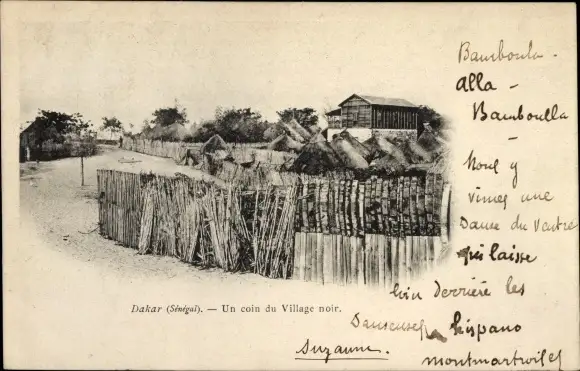 Bamboula -
alla -
Bamboulla
-
Nous y
vîmes une
Danse du Ventre
qui laisse
loin derrière les
Danseuses hispano
montmartroises
Suzanne.
Dakar (Sénégal). — Un coin du Village noir.